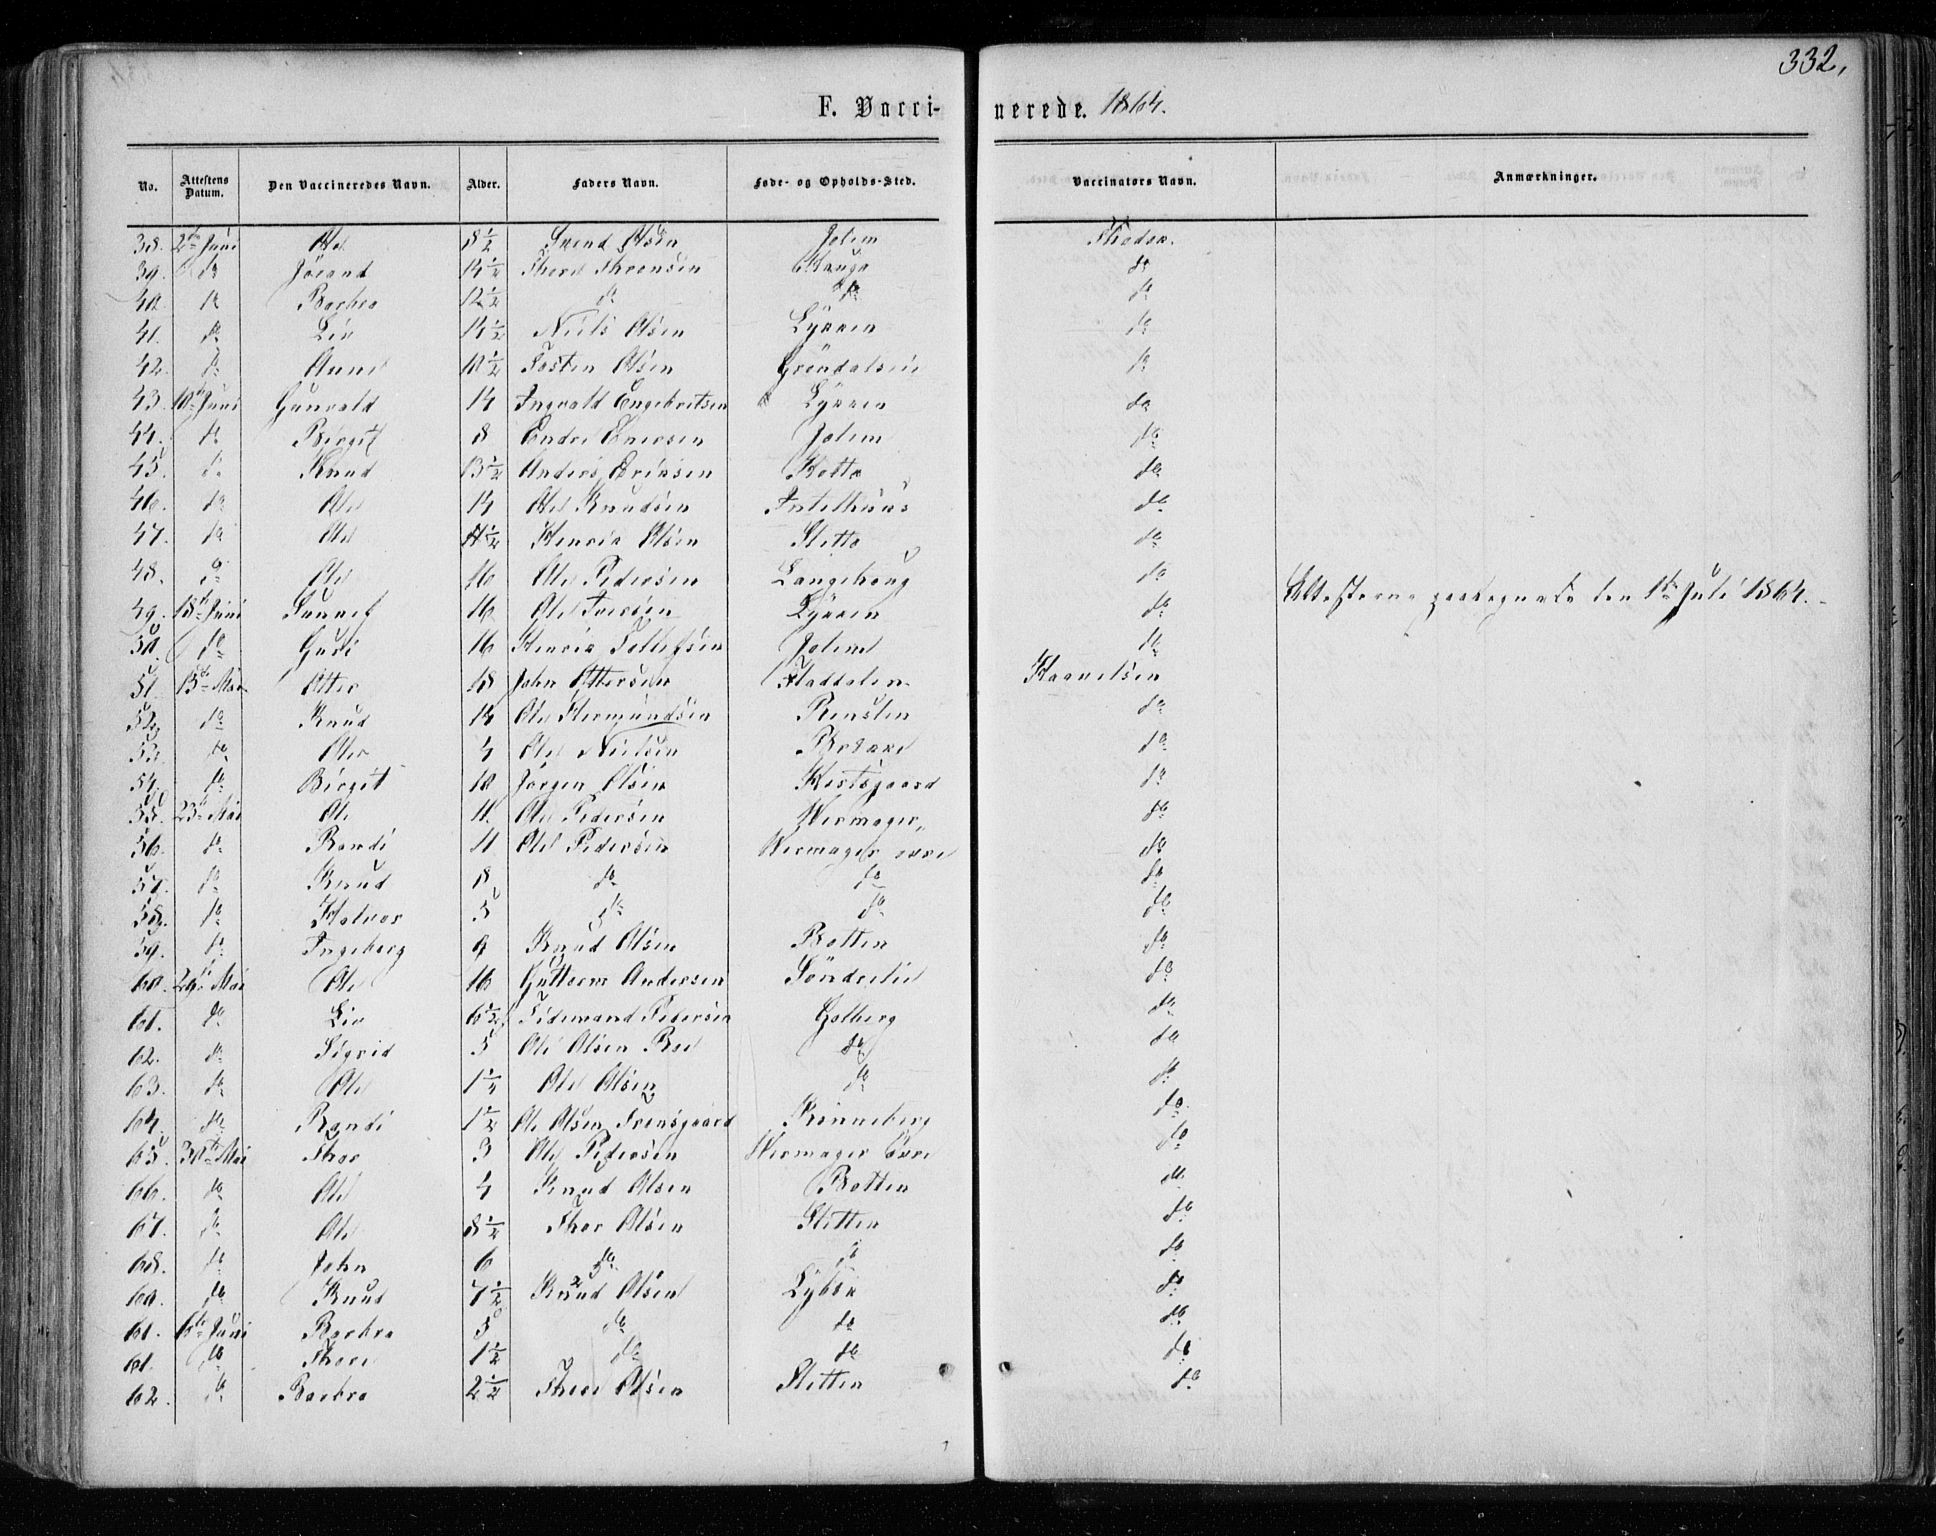 332,
F. Vaccinerede. 1864.
No. Attestens Datum. Den Vaccineredes Navn. Alder. Faders Navn. Føde- og Opholds-Sted. Vaccinators Navn. Anmærkninger.
38. 2den Juni Ole 8 1/2 Svend Olsen Jolem
39. do Jørand 14 1/2 Thore Thronsen Hauge do
40. do Barbra 12 1/2 do do do
41. do Liv 14 1/2 Niels Olsen Lÿkken do
42. do Anne 10 1/2 Tosten Olsen Gröndalseie do
43. 10de Juni Gunvald 14 Ingvald Engebretsen Lÿkken do
44. do Birgit 8 Endre Ericsen Jolem do
45. do Knud 13 1/2 Anders Eriksen do
46. do Ole 14 Ole Knudsen do
47. do Ole 11 1/2 Henrik Olsen Sletto do
48. do Ole 16 Ole Pedersen Langehoug do
49. 18de Juni Sunnef 16 Ole Iversen Lÿkken do Attesterne paategnede den 1ste Juli 1864.
50. do Guri 16 Henrik Tollefsen Jolem do
51. 13de Mai Otter 18 John Ottersen Fladdalen
52. do Knud 14 Ole Hermundsen Renslen do
53. do Ole 4 Ole Nielsen do
54. do Birgit 10 Jörgen Olsen do
55. 23de Mai Ole 11. Ole Pedersen Wermager do
56. do Randi 11 Ole Pedersen Wermager övre do
57. do Knud 8 do do do
58. do Halvor 5 do do do
59. do Ingeborg 9 Knud Olsen Botten do
60. 29de Mai Ole 16 Guttorm Andersen Sönderlie do
61. do Liv 6 1/2 Tidemand Pedersen Golberg do
62. do Sigrid 5 Ole Olsen Roe do do
63. do Ole 1 1/4 Ole Olsen do do
64. do Randi 1 1/2 Ole Olsen Svensgaard Rinneberg do
65. 30te Mai Thor 3 Ole Pedersen Wermager övre do
66. do Ole 4 Knud Olsen Botten do
67. do Ole 8 1/2 Thor Olsen Sletten do
68. do John 6 do do do
69. do Knud 7 1/2 Knud Olsen Lÿbek do
61. 6te Juni Barbra 5 do do do
61. do Thore 1 1/2 do do do
62. do Barbra 2 1/2 Thore Olsen Sletten do